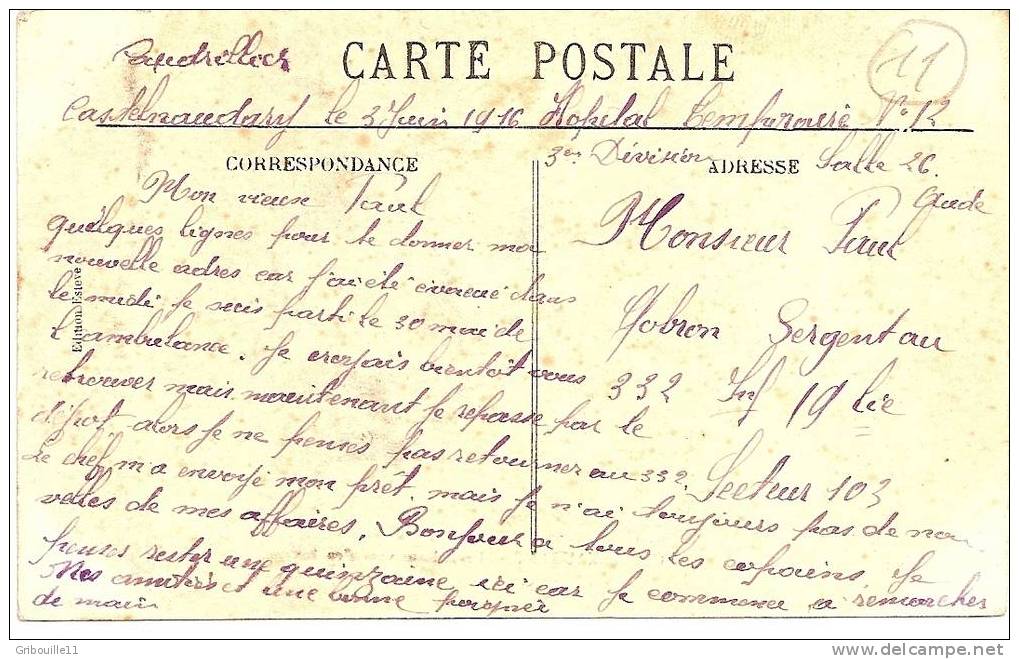 CARTE POSTALE
11
Castelnaudary le 2 Juin 1916 Hopital Temporaire N° 12
3em Division Salle 26.
Aude
CORRESPONDANCE
ADRESSE
Mon vieux Paul
quelques lignes pour te donner ma
nouvelle adres car j'ai été évacué dans
le midi je suis parti le 30 mai de
l'ambulance. Je croyais bientôt vous
retrouver mais maintenant je repasse par le
dépot alors je ne penses pas retourner au 332.
Le chef m'a envoyé mon prêt. mais je n'ai toujours pas de nou
velles de mes affaires. Bonjour a tous les copains. Je
penses rester une quinzaine ici car je commence a remarcher
Mes amitiés et une bonne poignée
de main
Monsieur Paul
Hobron Sergent au
332 Inf 19 Cie
Secteur 103
Edition Esteve
Gribouille11
www.delcampe.net